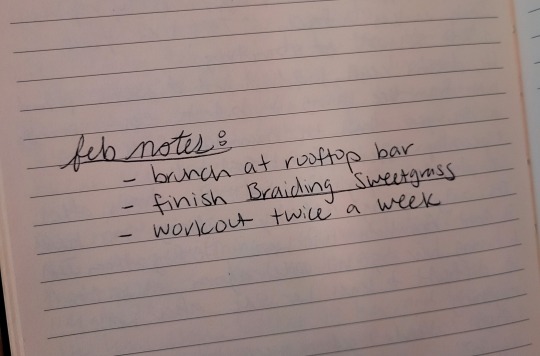 feb notes:
- brunch at rooftop bar
- finish Braiding Sweetgrass
- workout twice a week